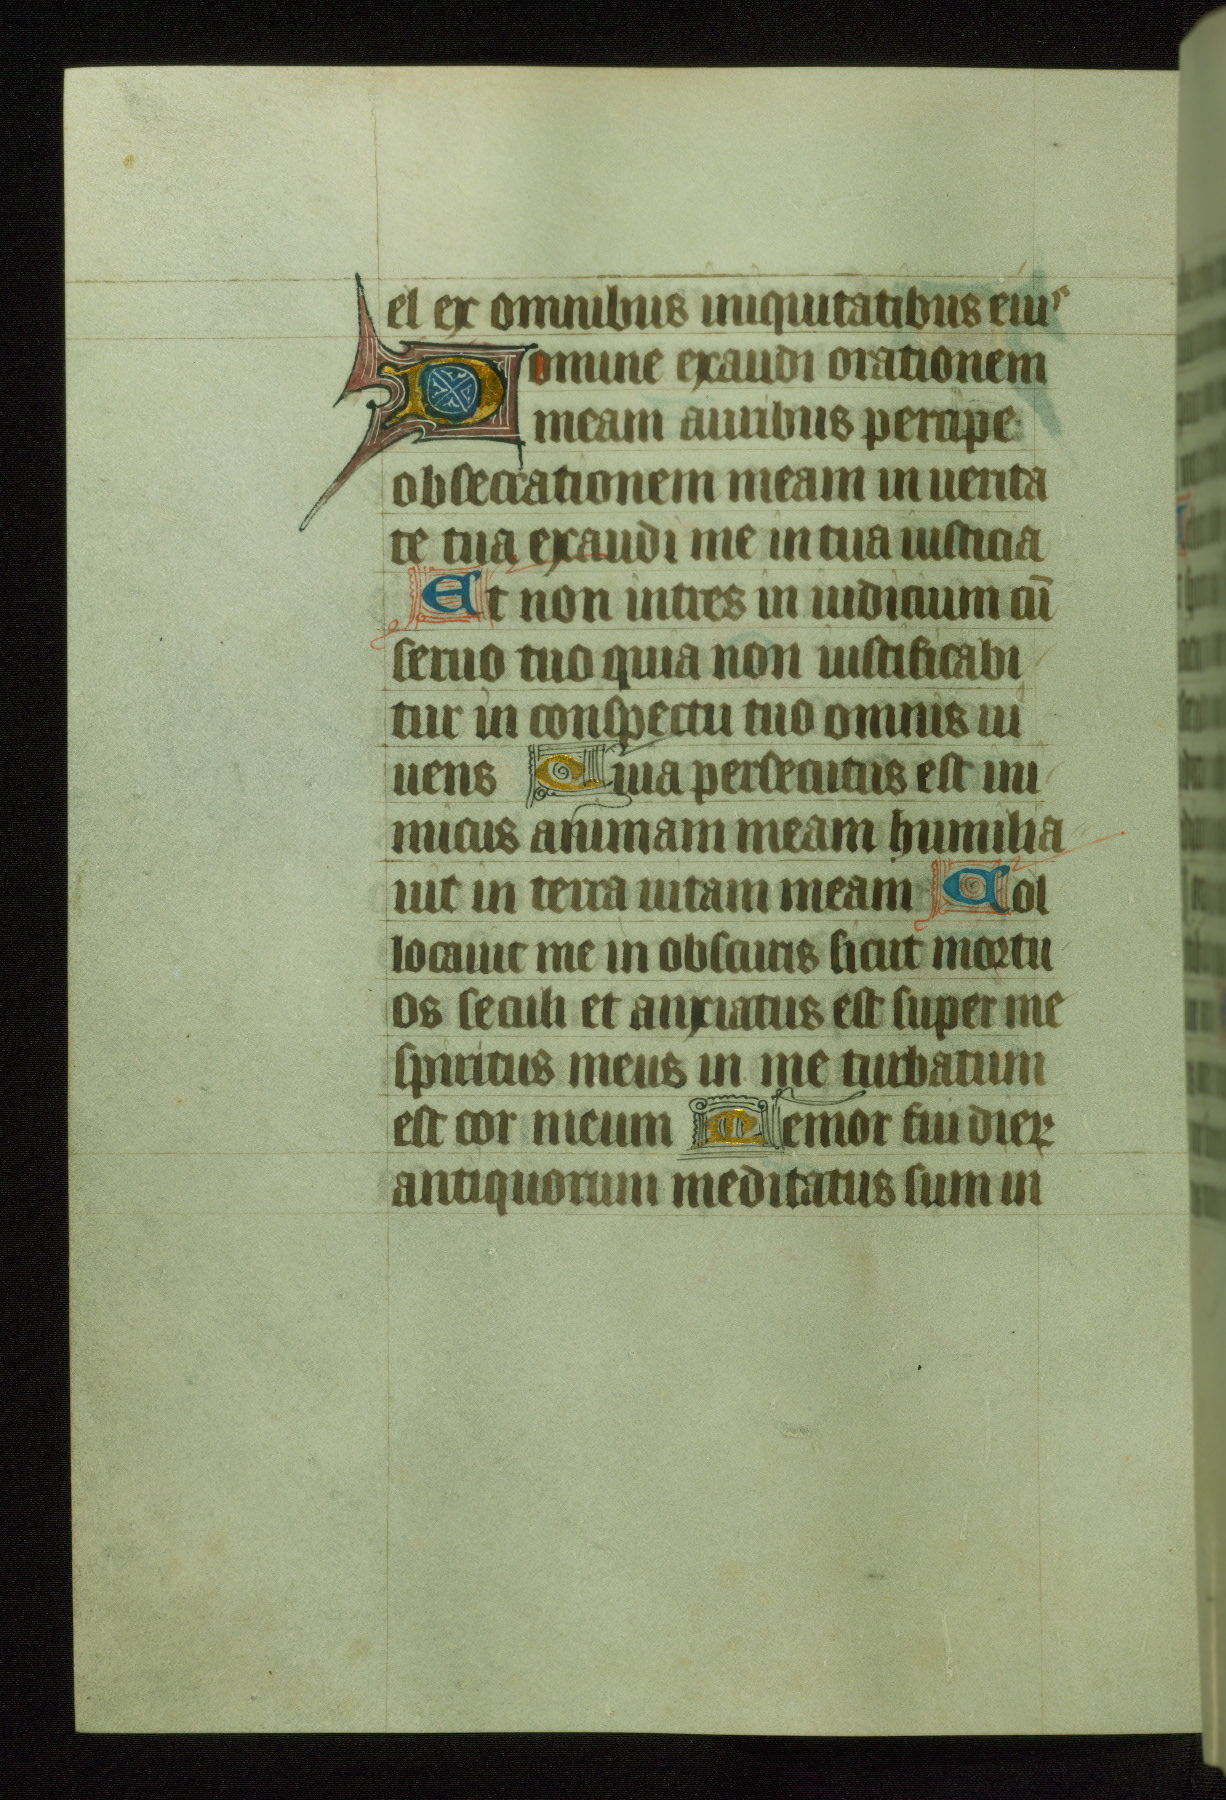 el ex omnibus iniquitatibus eius
Domine exaudi orationem
meam auribus percipe
obsecrationem meam in uerita
te tua exaudi me in tua iusticia
Et non intres in iudicium cū
seruo tuo quia non iustificabi
tur in conspectu tuo omnis ui
uens Quia persecutus est ini
micus animam meam humilia
uit in terra uitam meam Col
locauit me in obscuris sicut mortu
os seculi et anxiatus est super me
spiritus meus in me turbatum
est cor meum Memor fui dieꝝ
antiquorum meditatus sum in